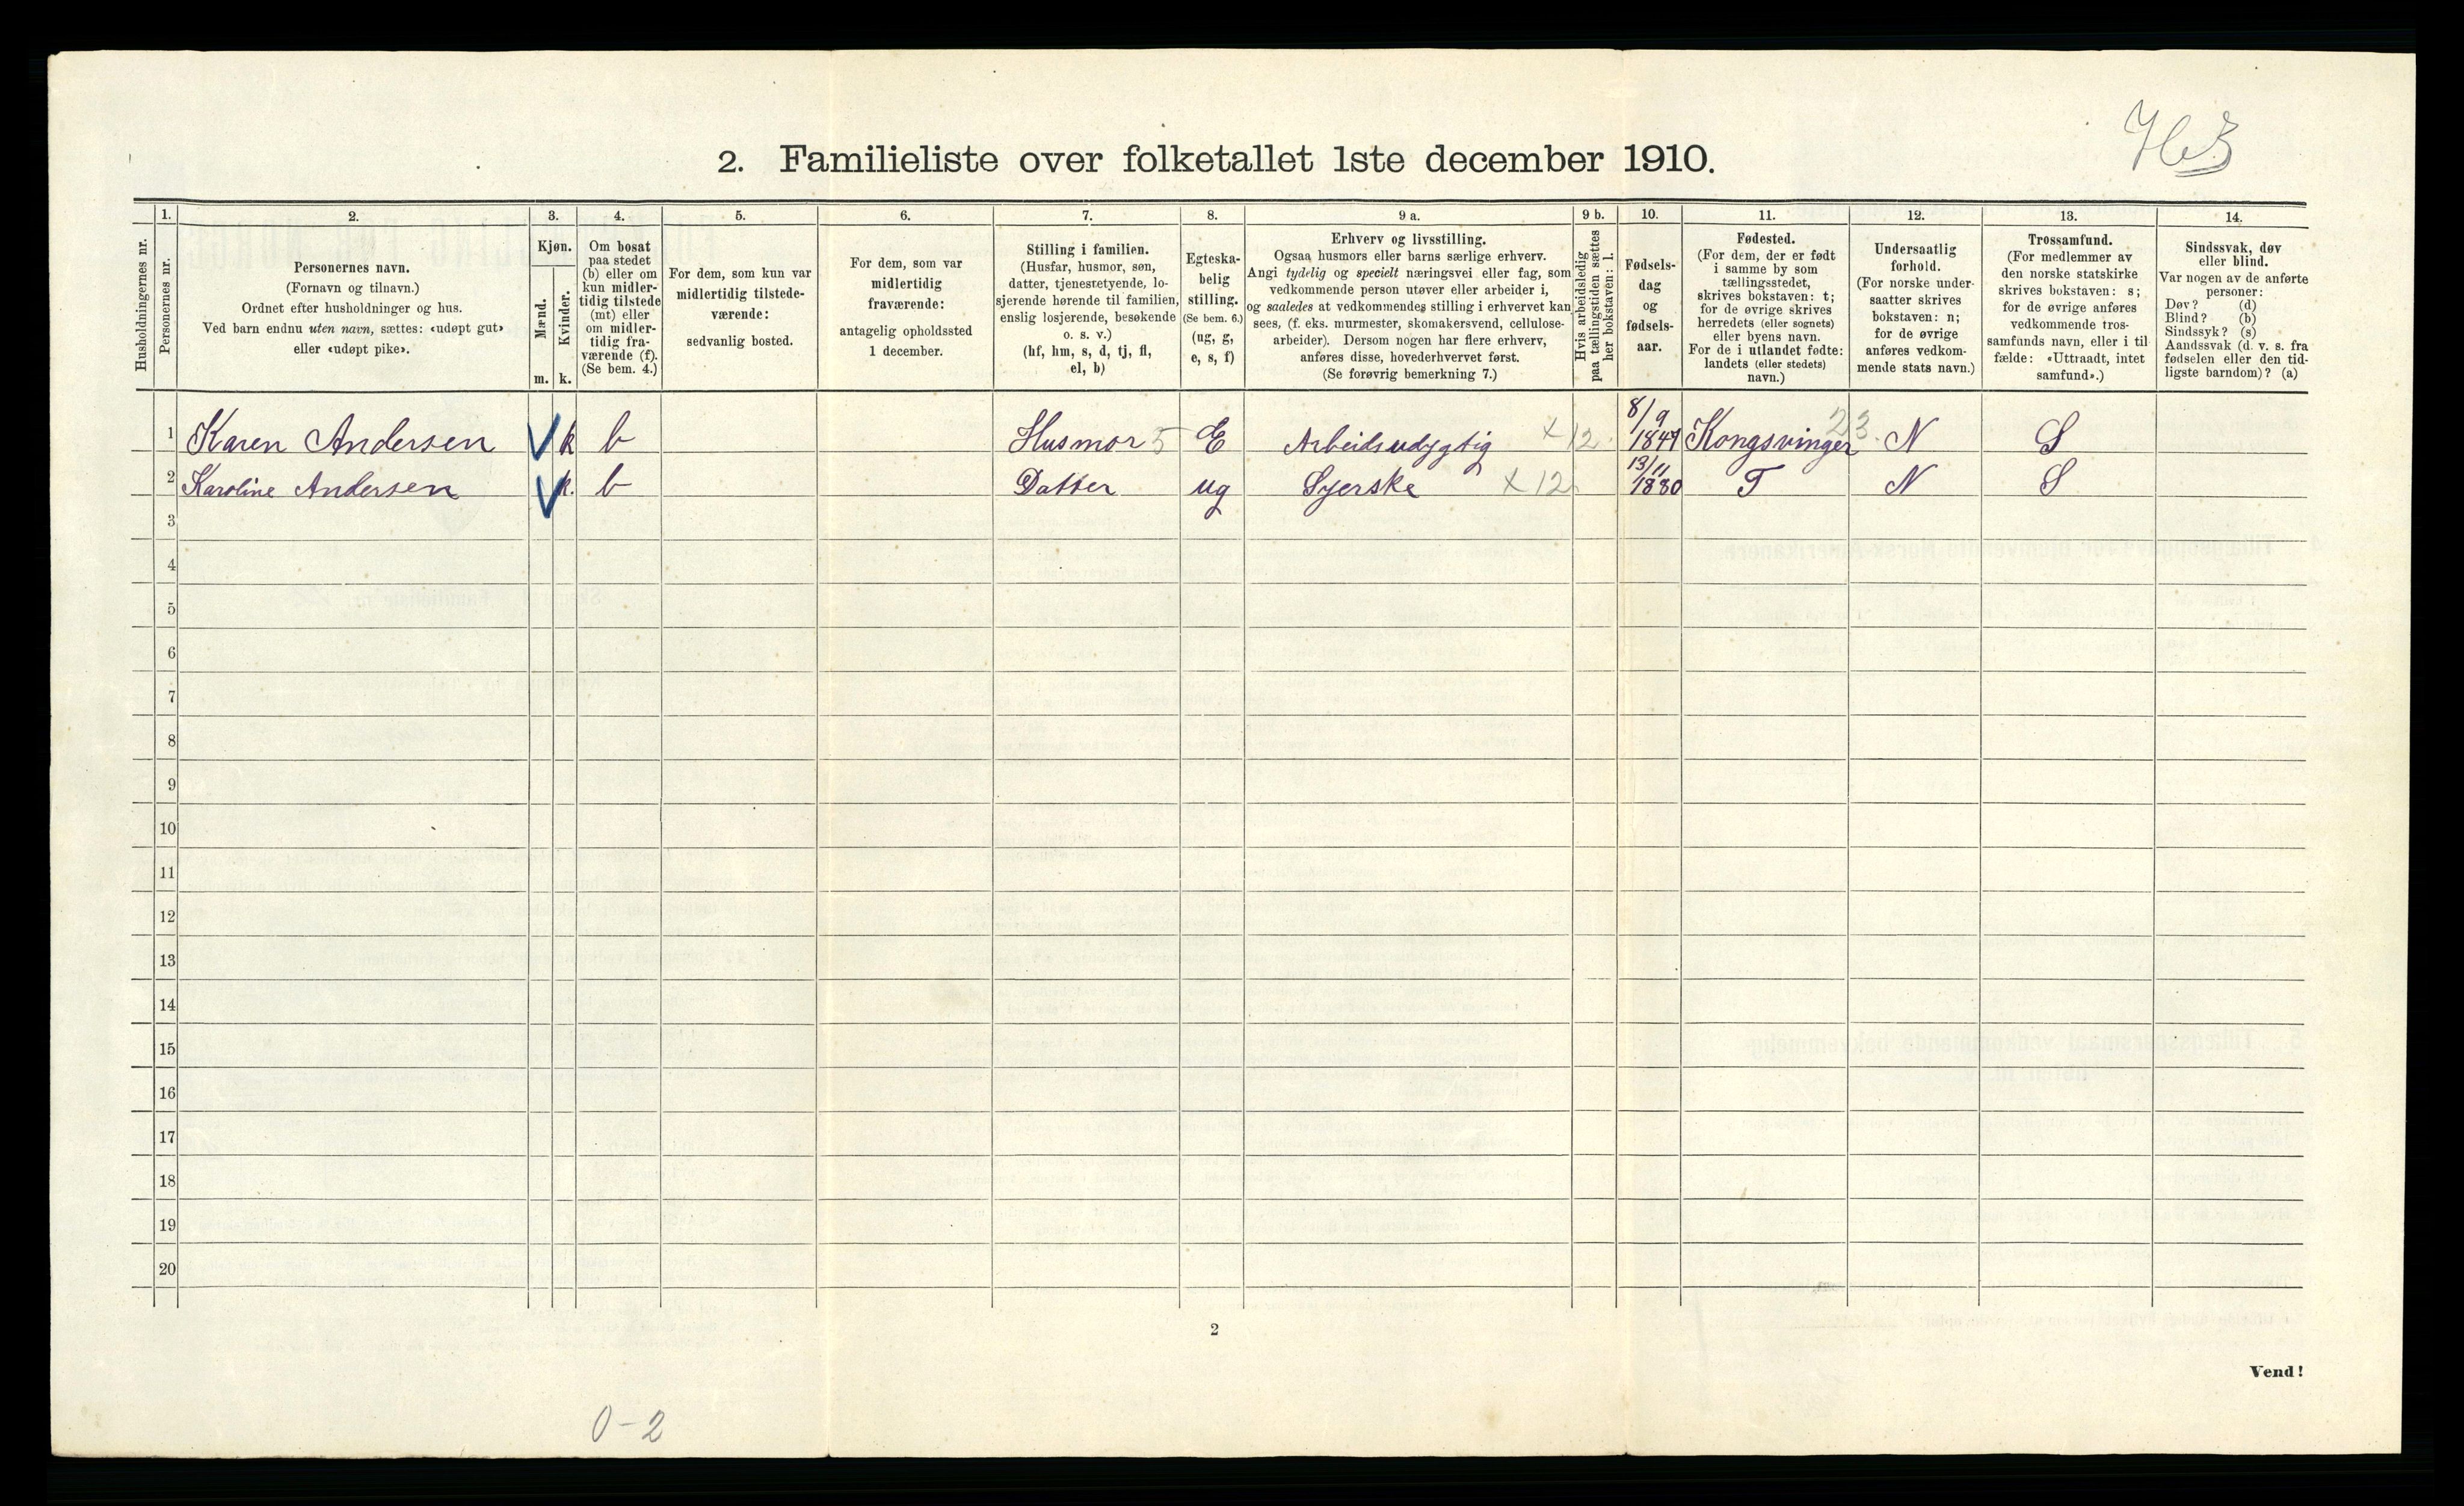 2. Familieliste over folketallet 1ste december 1910.
1. 2. 3. 4. 5. 6. 7. 8. 9 a. 9 b. 10. 11. 12. 13. 14.
Husholdningernes nr.
Personernes nr.
Personernes navn.
(Fornavn og tilnavn.)
Ordnet efter husholdninger og hus.
Ved barn endnu uten navn, sættes: «udøpt gut»
eller «udøpt pike».
Kjøn.
Mænd.
Kvinder.
m. k.
Om bosat
paa stedet
(b) eller om
kun midler-
tidig tilstede
(mt) eller
om midler-
tidig fra-
værende (f).
(Se bem. 4.)
For dem, som kun var
midlertidig tilstede-
værende:
sedvanlig bosted.
For dem, som var
midlertidig
fraværende:
antagelig opholdssted
1 december.
Stilling i familien.
(Husfar, husmor, søn,
datter, tjenestetyende, lo-
sjerende hørende til familien,
enslig losjerende, besøkende
o. s. v.)
(hf, hm, s, d, tj, fl,
el, b)
Egteska-
belig
stilling.
(Se bem. 6.)
(ug, g,
e, s, f)
Erhverv og livsstilling.
Ogsaa husmors eller barns særlige erhverv.
Angi tydelig og specielt næringsvei eller fag, som
vedkommende person utøver eller arbeider i,
og saaledes at vedkommendes stilling i erhvervet kan
sees, (f. eks. murmester, skomakersvend, cellulose-
arbeider). Dersom nogen har flere erhverv,
anføres disse, hovederhvervet først.
(Se forøvrig bemerkning 7.)
Hvis arbeidsledig
paa tællingstiden sættes
her bokstaven: l.
Fødsels-
dag
og
fødsels-
aar.
Fødested.
(For dem, der er født
i samme by som
tællingsstedet,
skrives bokstaven: t;
for de øvrige skrives
herredets (eller sognets)
eller byens navn.
For de i utlandet fødte:
landets (eller stedets)
navn.)
Undersaatlig
forhold.
(For norske under-
saatter skrives
bokstaven: n;
for de øvrige
anføres vedkom-
mende stats navn.)
Trossamfund.
(For medlemmer av
den norske statskirke
skrives bokstaven: s;
for de øvrige anføres
vedkommende tros-
samfunds navn, eller i til-
fælde: «Uttraadt, intet
samfund».)
Sindssvak, døv
eller blind.
Var nogen av de anførte
personer:
Døv? (d)
Blind? (b)
Sindssyk? (s)
Aandssvak (d. v. s. fra
fødselen eller den tid-
ligste barndom)? (a)
1 Karen Andersen k b Husmor 5 E Arbeidsudygtig x 12 8/9 Kongsvinger 23 N S
2 Karoline Andersen k. b Datter ug Syerske x 12 13/11 1880 T N S
3
4
5
6
7
8
9
10
11
12
13
14
15
16
17
18
19
20
2
Vend!
0-2